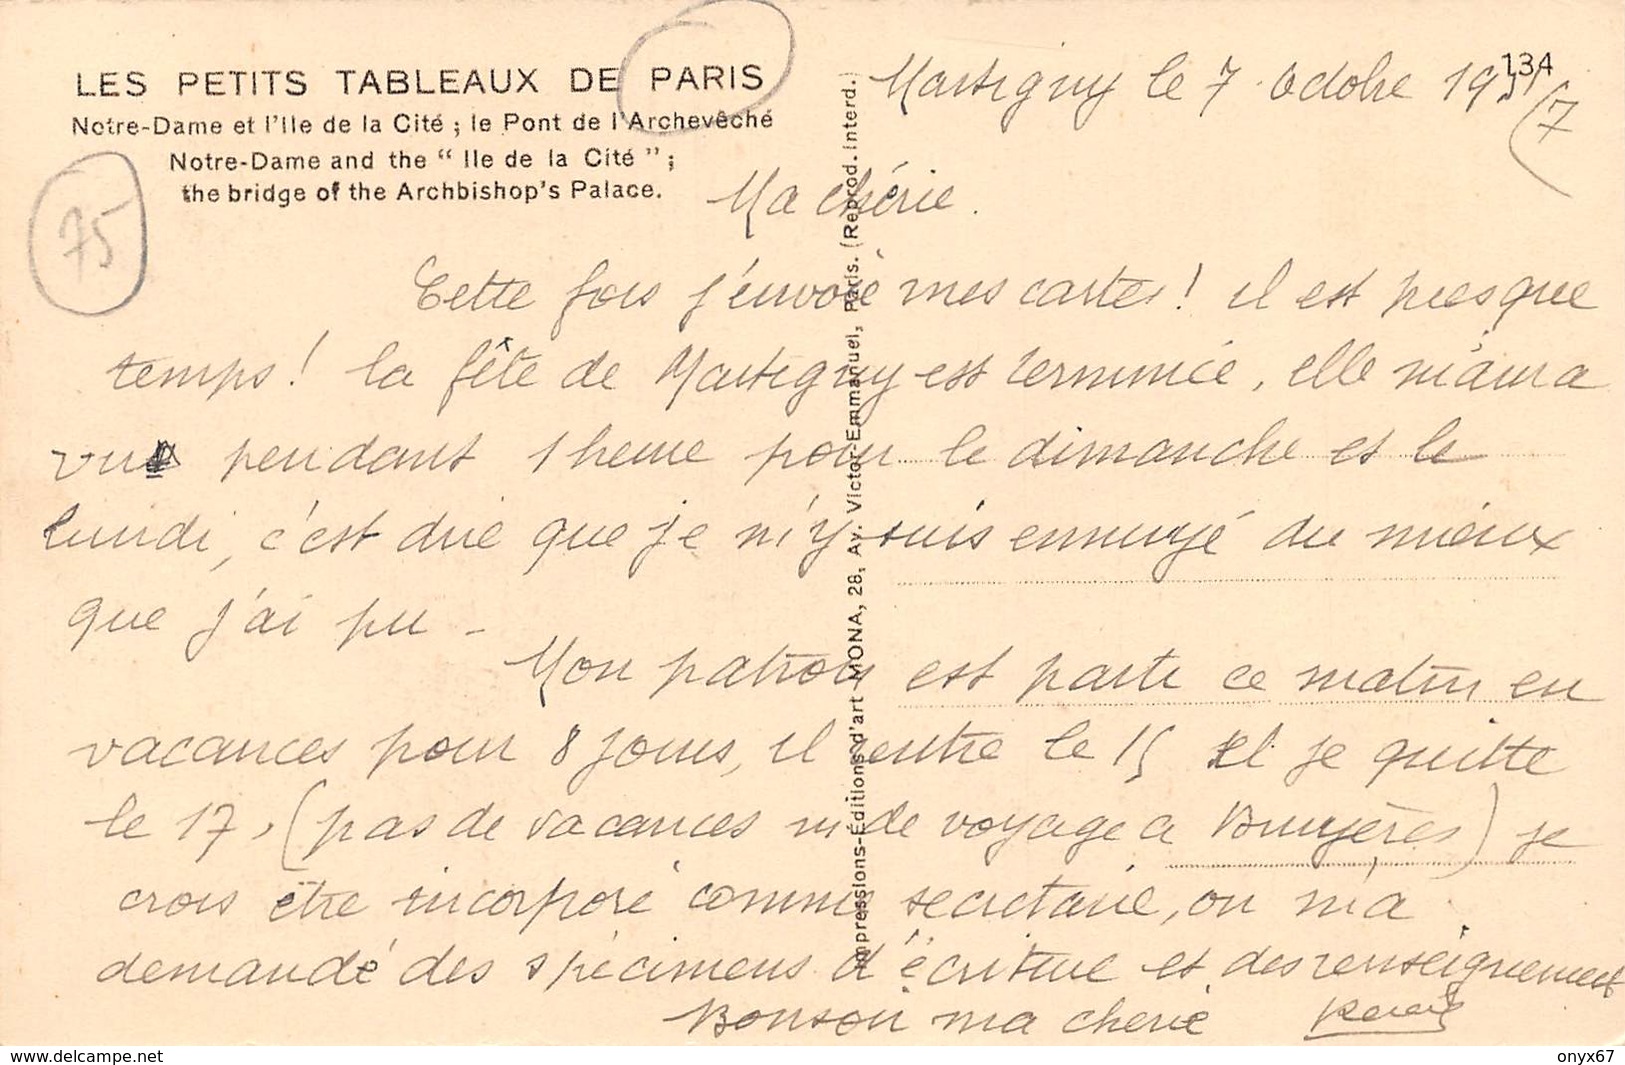 LES PETITS TABLEAUX DE PARIS
Notre-Dame et l'Ile de la Cité ; le Pont de l'Archevêché
Notre-Dame and the “ Ile de la Cité ” ;
the bridge of the Archbishop's Palace.
134
75
7
Impressions-Éditions d'art MONA, 28, Av. Victor-Emmanuel, Paris. (Reprod. Interd.)
Martigny le 7 Octobre 1931
Ma chérie.
Cette fois j'envoie mes cartes ! il est presque
temps ! la fête de Martigny est terminée, elle m'aura
vu pendant 1 heure pour le dimanche et le
lundi, c'est dire que je m'y suis ennuyé du mieux
que j'ai pu -
Mon patron est parti ce matin en
vacances pour 8 jours, il rentre le 15 et je quitte
le 17, (pas de vacances ni de voyage a Bruyères) je
crois être incorporé comme secretaire, on m'a
demandé des spécimens d'écriture et des renseignement
Bonsoir ma cherie
onyx67
delcampe.net